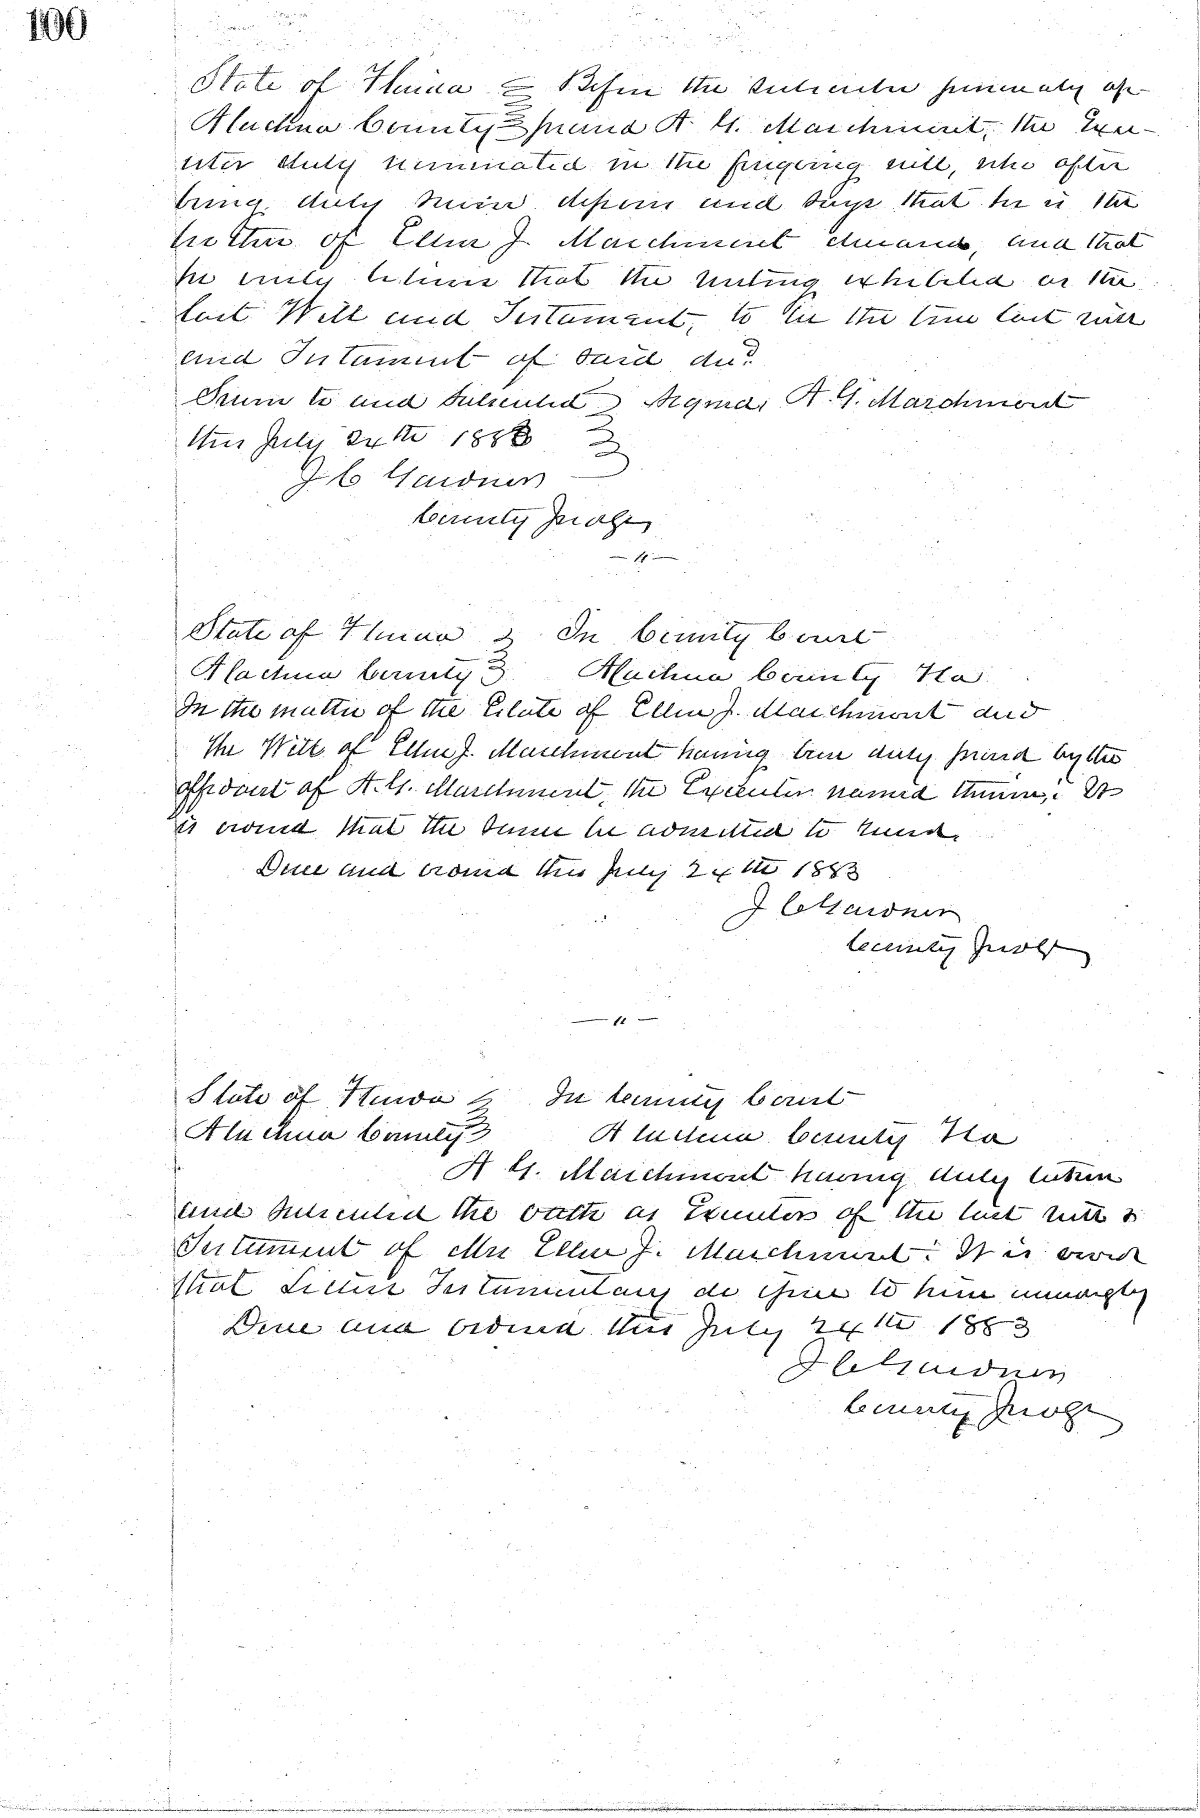 100
State of Florida } Before the subscriber personally ap-
Alachua County } peared A. G. Marchmont, the Exe-
cutor duly nominated in the foregoing will, who after
being duly sworn deposes and says that he is the
brother of Ellen J. Marchmont deceased, and that
he verily believes that the writing exhibited as the
last Will and Testament, to be the true last will
and Testament of said decd.
Sworn to and subscribed } Signed, A. G. Marchmont
this July 24th 1883 }
J C Gardner
County Judge,
— " —
State of Florida } In County Court
Alachua County } Alachua County Fla
In the matter of the Estate of Ellen J. Marchmont decd
The Will of Ellen J. Marchmont having been duly proved by the
affidavit of A. G. Marchmont, the Executor named therein; It
is ordered that the same be admitted to record.
Done and ordered this July 24th 1883
J C Gardner
County Judge
— " —
State of Florida } In County Court
Alachua County } Alachua County Fla
A G. Marchmont having duly taken
and subscribed the oath as Executor of the last will &
Testament of Mrs Ellen J. Marchmont: It is ordered
that Letters Testamentary do issue to him accordingly
Done and ordered this July 24th 1883
J C Gardner
County Judge